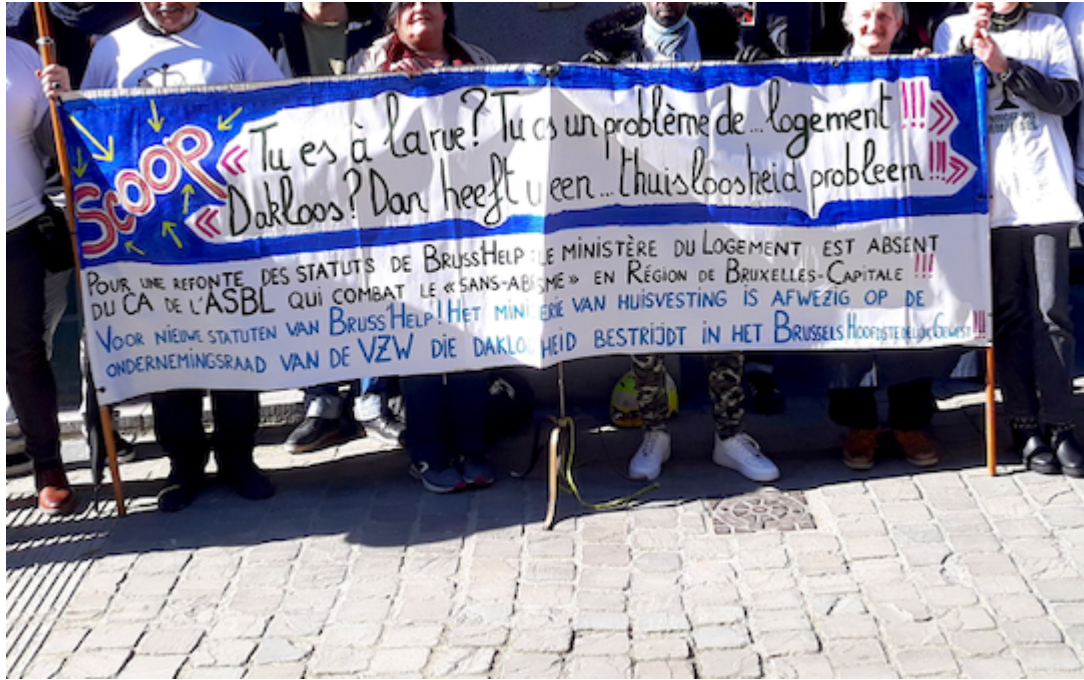 SCOOP
« Tu es à la rue? Tu as un problème de... logement !!! »
« Dakloos? Dan heeft u een... thuisloosheid probleem !!! »
POUR UNE REFONTE DES STATUTS DE BRUSS'HELP : LE MINISTÈRE DU LOGEMENT EST ABSENT
DU CA DE L'ASBL QUI COMBAT LE « SANS-ABRISME » EN RÉGION DE BRUXELLES-CAPITALE !!!
VOOR NIEUWE STATUTEN VAN BRUSS'HELP! HET MINISTERIE VAN HUISVESTING IS AFWEZIG OP DE
ONDERNEMINGSRAAD VAN DE VZW DIE DAKLOOSHEID BESTRIJDT IN HET BRUSSELS HOOFDSTEDELIJK GEWEST !!!